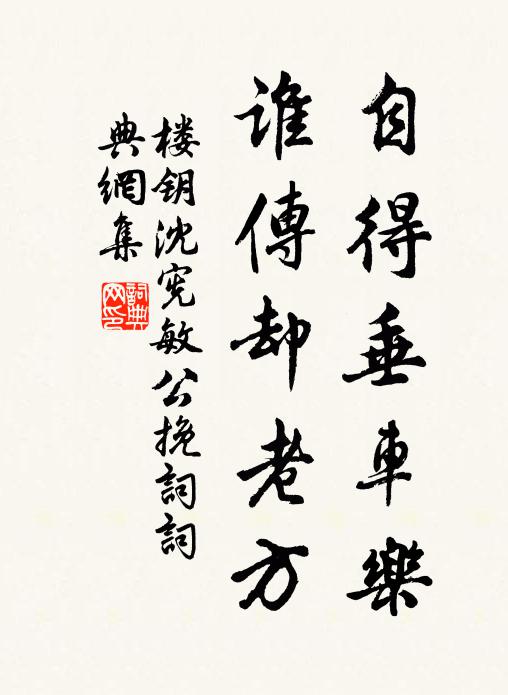 自得垂車樂
誰傳却老方
楼钥沈宪敏公挽詞詞
典網集
詞典
网印